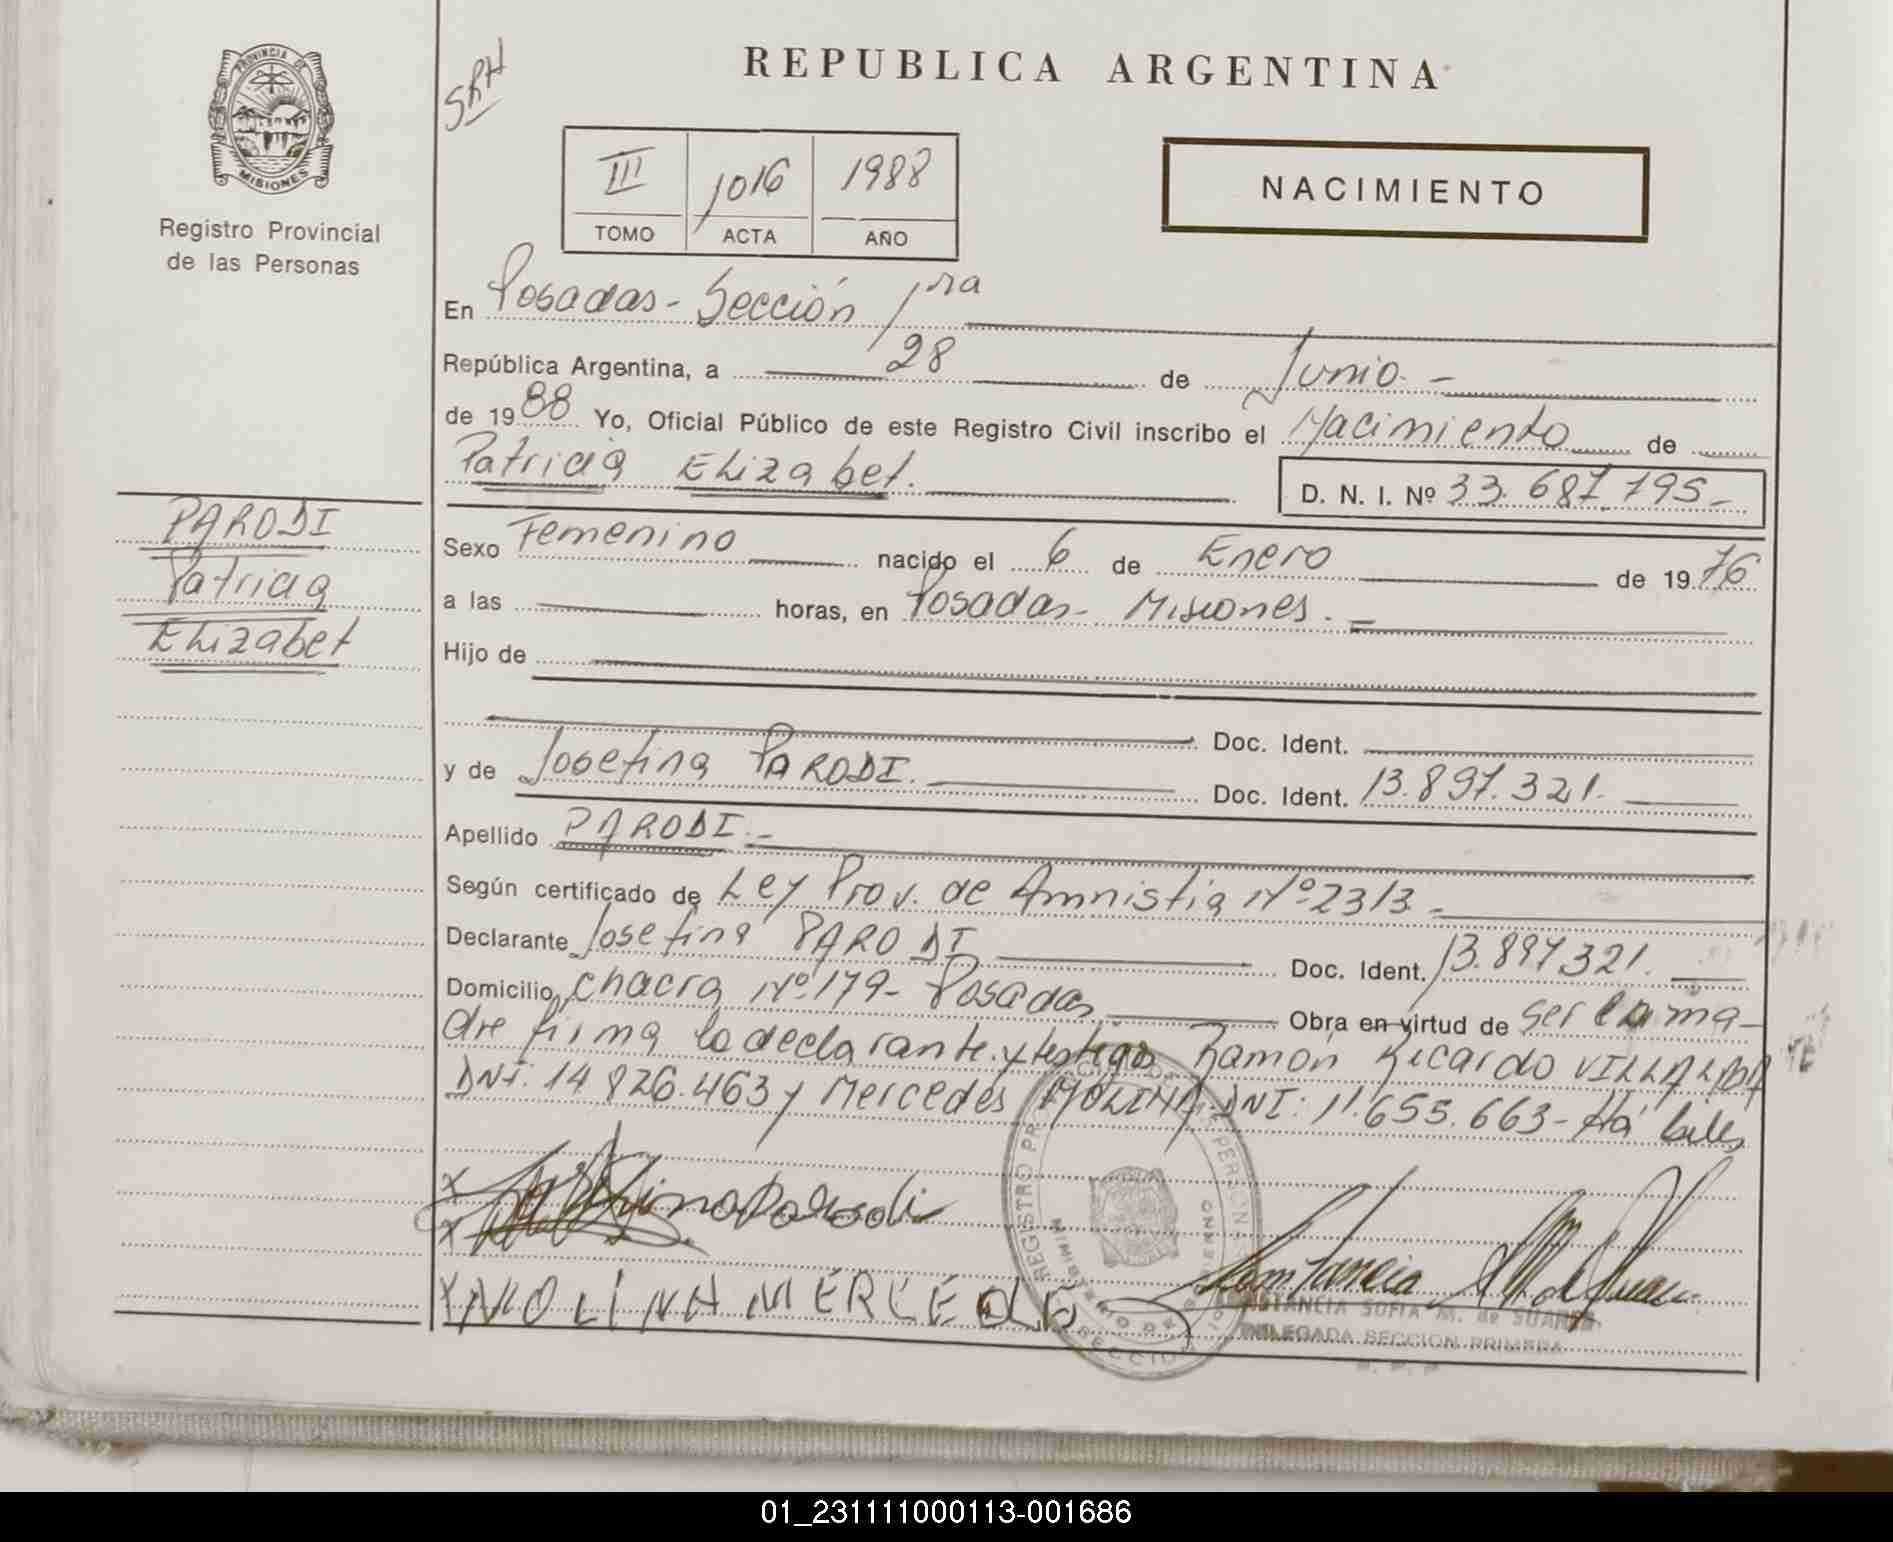 PROVINCIA DE
MISIONES
Registro Provincial
de las Personas
SRH
REPUBLICA ARGENTINA
III 1016 1988
TOMO ACTA AÑO
NACIMIENTO
En Posadas - Sección 1ra
República Argentina, a 28 de Junio. -
de 1988 Yo, Oficial Público de este Registro Civil inscribo el Nacimiento de
Patricia Elizabet.
D. N. I. Nº 33.687.795-
PARODI
Patricia
Elizabet
Sexo Femenino nacido el 6 de Enero de 1976
a las horas, en Posadas- Misiones. =
Hijo de
Doc. Ident.
y de Josefina PARODI. Doc. Ident. 13.897.321.
Apellido PARODI.-
Según certificado de Ley Prov. de Amnistia Nº 2313 -
Declarante Josefina PARODI Doc. Ident. 13.897.321.
Domicilio Chacra Nº 179- Posadas Obra en virtud de ser la ma-
dre firma la declarante y testigos Ramón Ricardo VILLALBA
DNI: 14.826.463 y Mercedes MOLINA DNI: 11.655.663- Há biles
X
X Josefina Parodi
X MOLINA MERCEDES
REGISTRO PROVINCIAL DE LAS PERSONAS
MINISTERIO DE GOBIERNO
SECCION
Constancia M de Suarez
CONSTANCIA SOFIA M. de SUAREZ
DELEGADA SECCION PRIMERA
R. P. P.
01_231111000113-001686